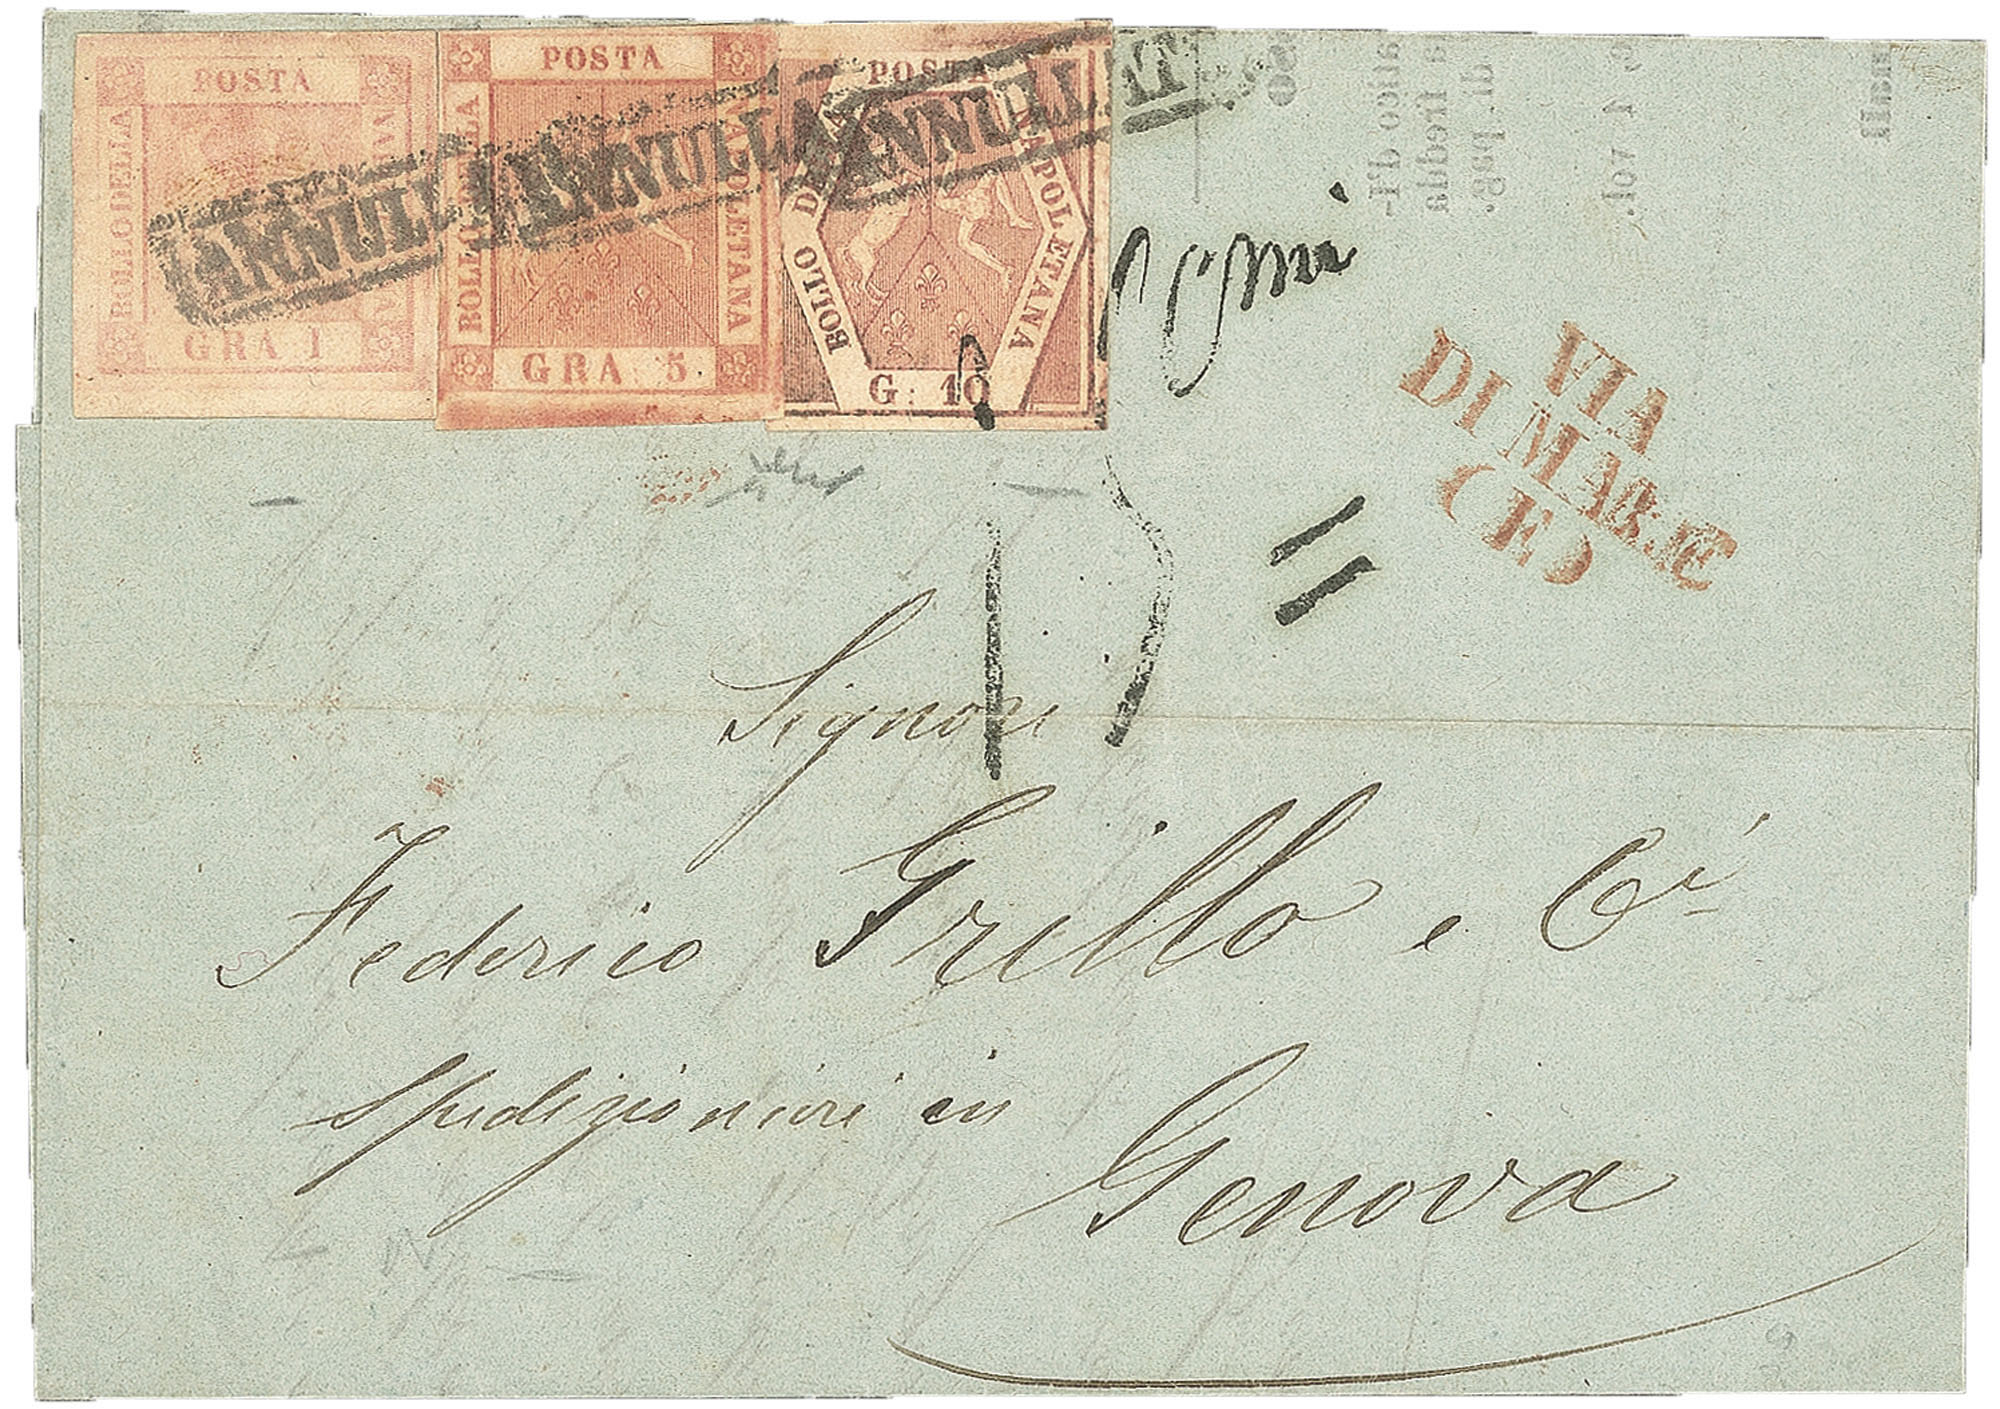 POSTA
BOLLO DELLA
GRA 1
ANNULLATO
POSTA
BOLLO DELLA
NAPOLETANA
GRA 5
ANNULLATO
POSTA
BOLLO DELLA
NAPOLETANA
G: 10
ANNULLATO
VIA
DI MARE
(E)
Signori
Federico Grillo e Ci
Spedizionieri in
Genova